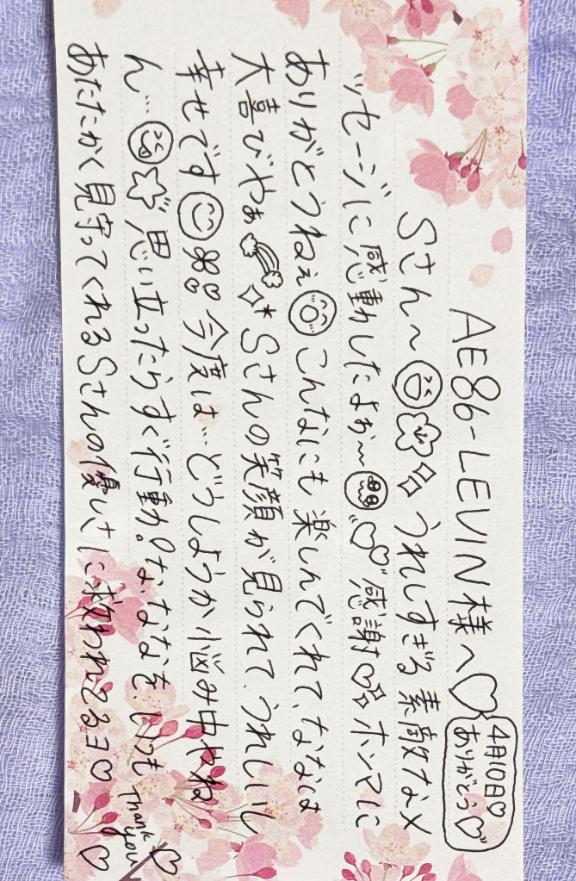 AE86-LEVIN様へ♡
4月10日♡
ありがとう♡
Sさん〜 うれしすぎる素敵なメ
ッセージに感動したよぉ〜 感謝♡ ホンマに
ありがとうねぇ こんなにも楽しんでくれて、ななは
大喜びやぁ Sさんの笑顔が見られて、うれしいし
幸せです 今度は…どうしようか悩み中やね
ん… 思い立ったらすぐ行動。な、ななを、いつも
あたたかく見守ってくれるSさんの優しさに救われてるヨ♡
Thank you ♡